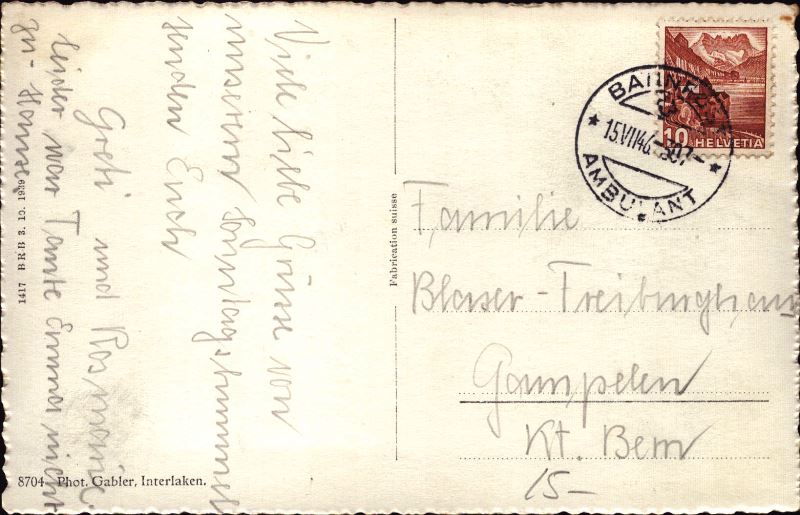 Viele liebe Grüsse von
unserem Sonntagsbummel
senden Euch
Greti und Rosmarie.
leider war Tante Emma nicht
zu-Hause.
1417 B.R.B 3. 10. 1939
8704 Phot. Gabler, Interlaken.
Fabrication suisse
BAHNPOST
15.VII.46
AMBULANT
10 HELVETIA
Familie
Blaser-Freiburghaus
Gampelen
Kt. Bern
15-